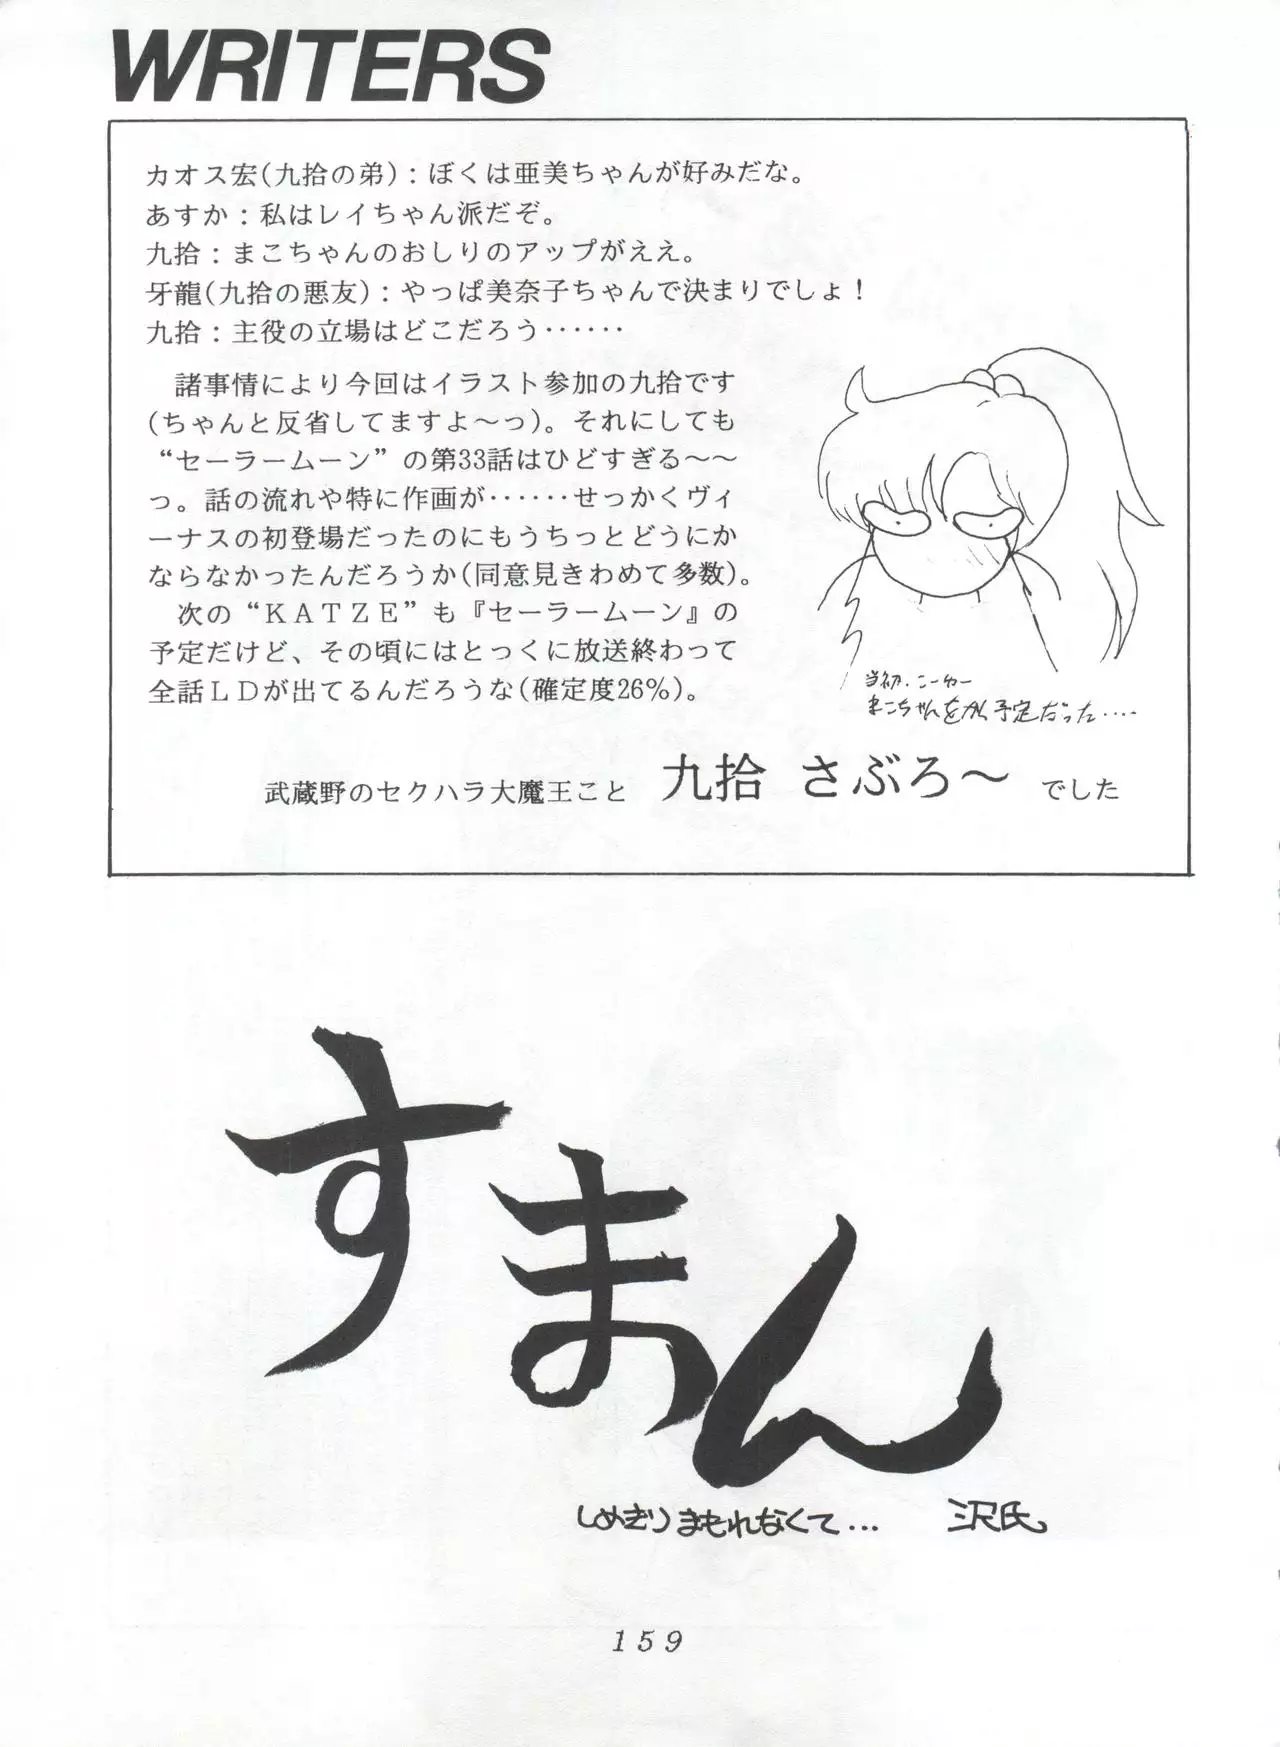 WRITERS
カオス宏(九拾の弟)：ぼくは亜美ちゃんが好みだな。
あすか：私はレイちゃん派だぞ。
九拾：まこちゃんのおしりのアップがええ。
牙龍(九拾の悪友)：やっぱ美奈子ちゃんで決まりでしょ！
九拾：主役の立場はどこだろう‥‥‥
諸事情により今回はイラスト参加の九拾です
(ちゃんと反省してますよ～っ)。それにしても
“セーラームーン”の第33話はひどすぎる～～
っ。話の流れや特に作画が‥‥‥せっかくヴィ
ーナスの初登場だったのにもうちっとどうにか
ならなかったんだろうか(同意見きわめて多数)。
次の“ＫＡＴＺＥ”も『セーラームーン』の
予定だけど、その頃にはとっくに放送終わって
全話ＬＤが出てるんだろうな(確定度26％)。
当初、こーゆー
まこちゃんをかく予定だった‥‥
武蔵野のセクハラ大魔王こと 九拾 さぶろ～ でした
すまん
しめきりまもれなくて… 沢氏
159